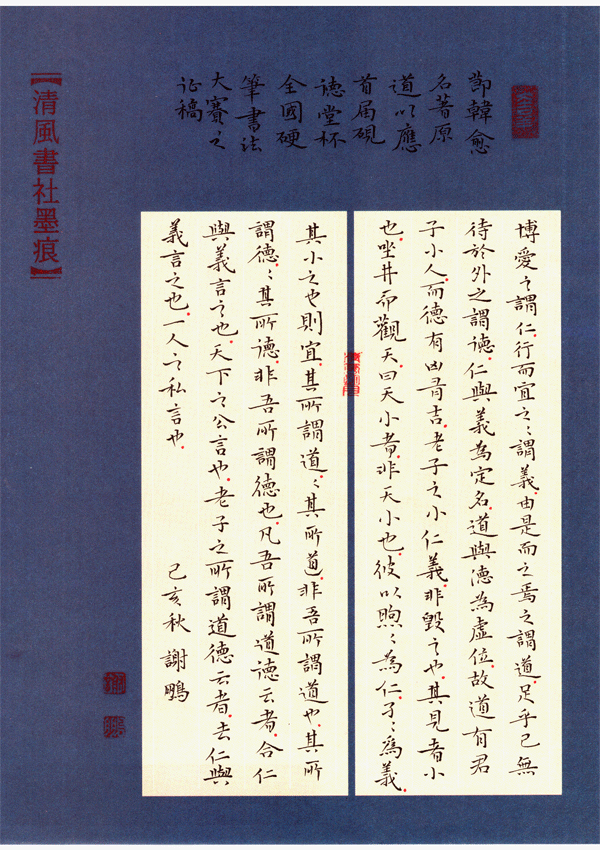 節韓愈
名著原
道以應
首届硯
德堂杯
全國硬
筆書法
大賽之
征稿
博愛之謂仁.行而宜之:謂義.由是而之焉之謂道.足乎己無
待於外之謂德.仁與義為定名.道與德為虛位.故道有君
子小人.而德有凶有吉.老子之小仁義.非毀之也.其見者小
也.坐井而觀天.曰天小者.非天小也.彼以煦:為仁.孑:為義.
其小之也則宜.其所謂道:其所道.非吾所謂道也.其所
謂德:其所德.非吾所謂德也.凡吾所謂道德云者.合仁
與義言之也.天下之公言也.老子之所謂道德云者.去仁與
義言之也.一人之私言也.
己亥秋 謝鵬
【清風書社墨痕】